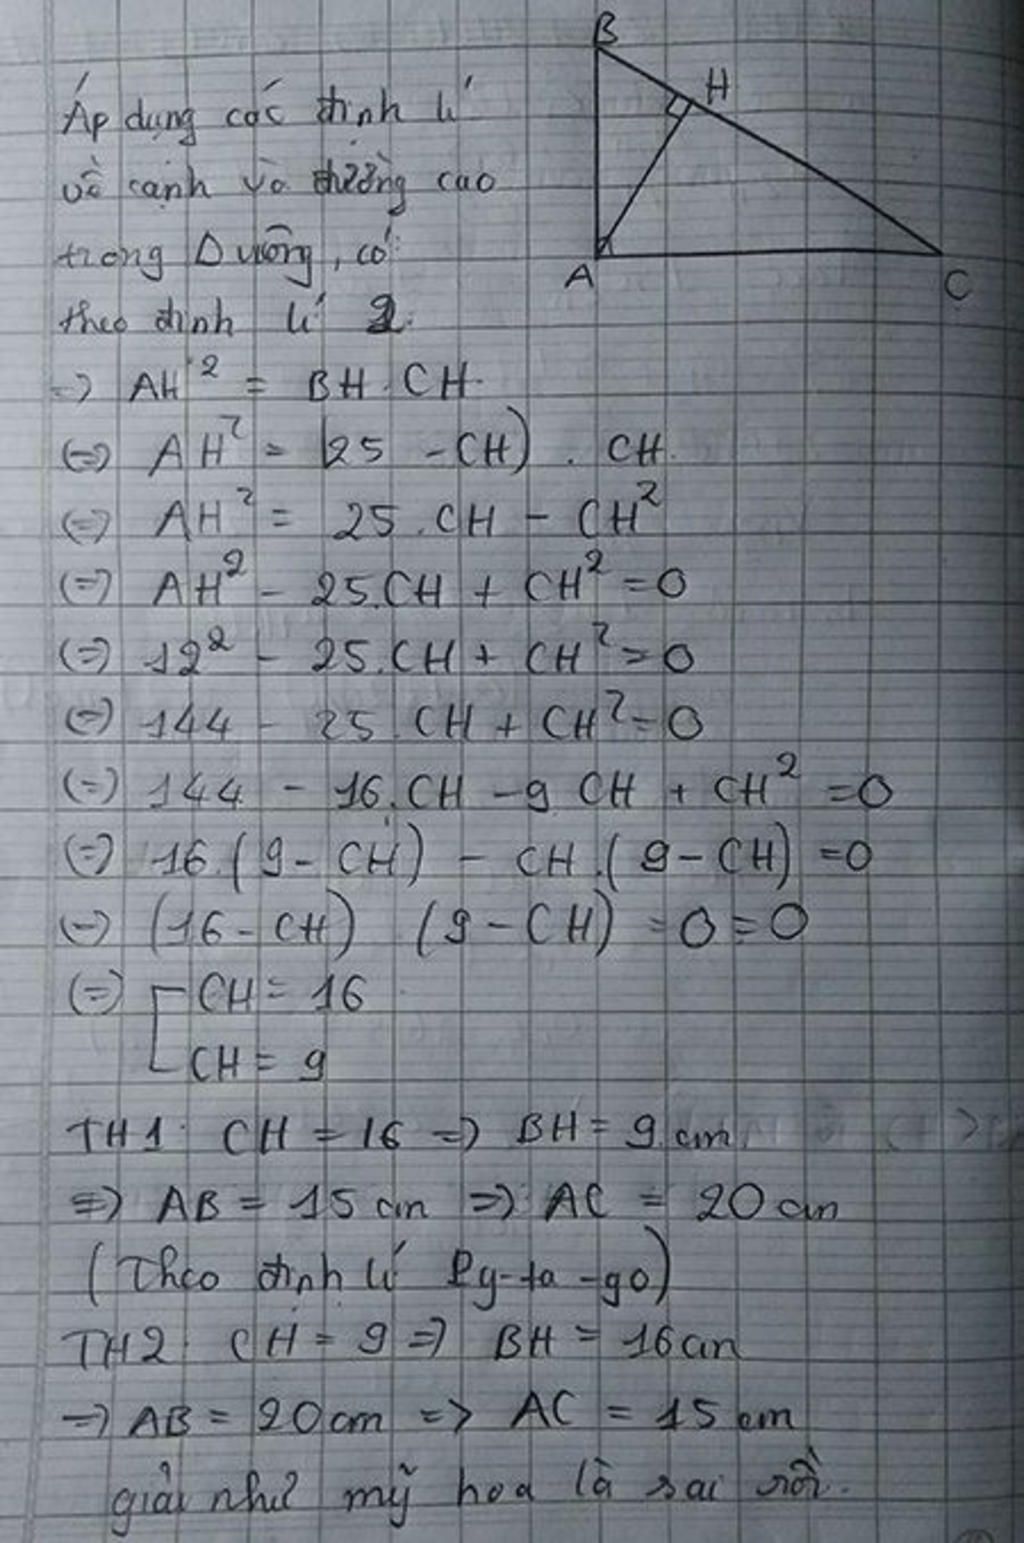 B
H
A
C
Áp dụng các định lí
về cạnh và đường cao
trong Δ vuông, có:
theo định lí 2:
=> AH² = BH . CH
(=) AH² = (25 - CH) . CH
(=) AH² = 25 . CH - CH²
(=) AH² - 25.CH + CH² = 0
(=) 12² - 25.CH + CH² = 0
(=) 144 - 25 . CH + CH² = 0
(=) 144 - 16.CH - 9 CH + CH² = 0
(=) 16.(9 - CH) - CH.(9 - CH) = 0
(=) (16 - CH) (9 - CH) = 0 = 0
(=) [ CH = 16
CH = 9
TH1: CH = 16 => BH = 9 cm
=> AB = 15 cm => AC = 20 cm
(Theo định lí Py-ta-go)
TH2: CH = 9 => BH = 16 cm
=> AB = 20 cm => AC = 15 cm
giải như mỹ hoa là sai rồi.